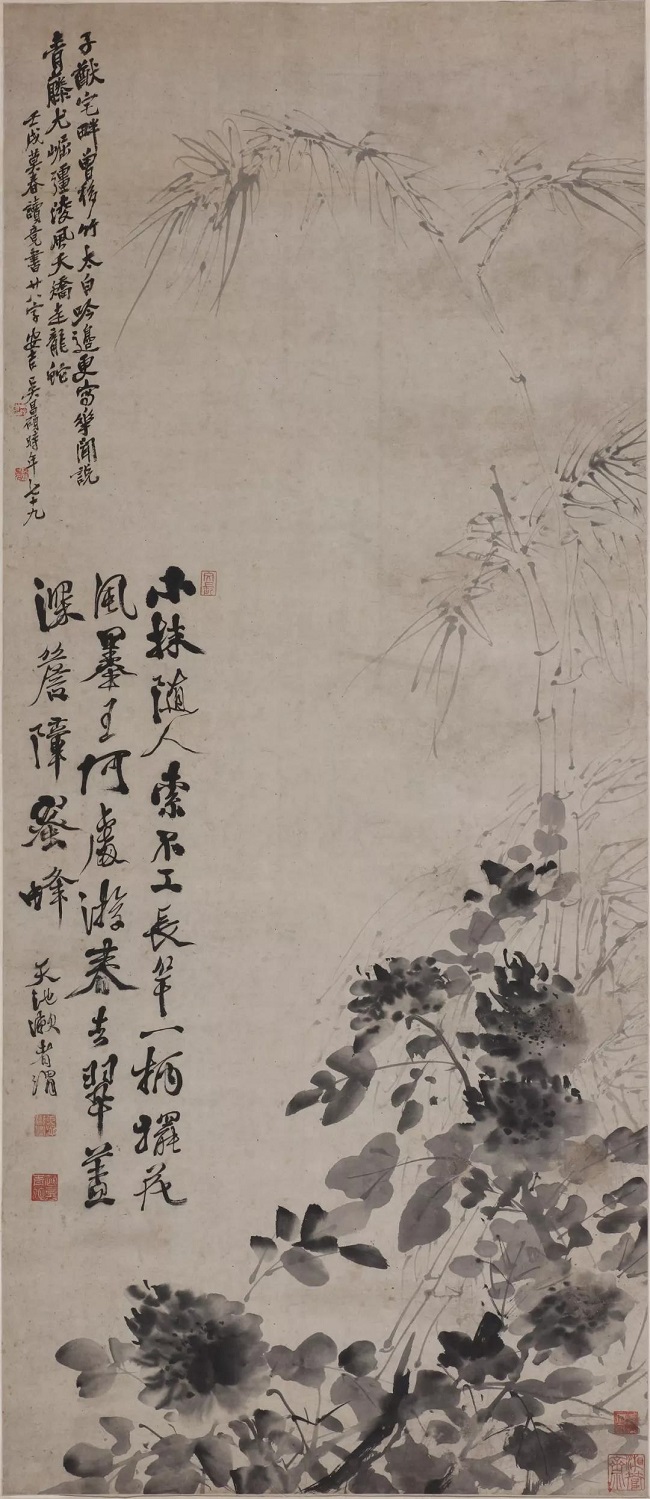 子猷宅畔曾移竹太白吟邊更寫華聞說
青藤尤崛彊淩風夭矯走龍蛇
壬戌莫春讀竟書廿八字安吉吳昌碩時年七十九
小抹隨人索不工長竿一柄擺花
風墨王何處游春去翠蓋
深簷障蜜蜂
天池漱者渭